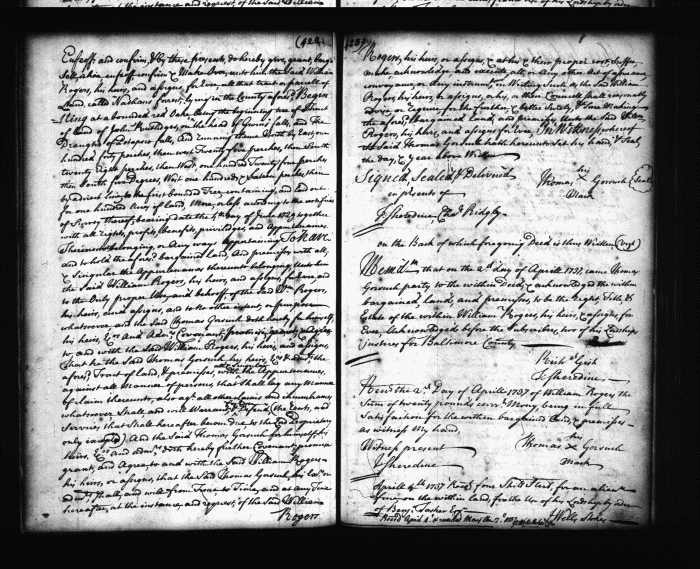 (422)
Enfeoff and confirm, & by these presents, do hereby give, grant, bargain
Sell, alien enfeoff confirm & Make Over, unto him the Said William
Rogers, his heirs, and assigns, for Ever, all that tract or parcell of
Land, called Nashans forest, lying in the County afores.d, Begin
ning at a bounded red Oake being the beginning tree of a tract
of land of John Rutledges, on the head of Gunns falls, and The
Draughts of Potapsco falls, and running thence North by East, one
hundred fifty perches, then west Twenty five perches, then South
twenty Eight perches, then West, one hundred Twenty four perches
then South five Degrees West one hundred & Sixteen perches, then
by a direct line to the first bounded Tree, containing, and laid out
for one hundred Acres of Land More, or less, according to the certificate
of Survey thereof, bearing date the day of June 1729 together
with all rights, profits, benefits, priviledges, and appurtenances
Thereunto belonging, or Any ways appertaining To have
and to hold the afores.d bargained Land, and premises, with all,
& Singular the Appurtenances thereunto belonging unto him
the Said William Rogers, his heirs, and assigns, for Ever, and
to the Only proper Use, and behoof of the Said W.m Rogers,
his heirs, and assigns, and to No other intent, or purpose
whatsoever, and the Said Thomas Gorsuch doth hereby for himself,
his heirs, Ex.rs and Adm.rs Covenant, promise, grant & agree
to, and with the Said William Rogers, his heirs, and assigns,
that he the Said Thomas Gorsuch his heirs, Ex.rs & adm.rs the
afores.d Tract of land, & premises, with the Appurtenances,
against all Manner of persons that Shall lay any Manner
of claim thereunto, also ag.st all other liens and incumbrances
whatsoever, Shall and will Warrant & Defend (the Rents, and
Services, that Shall hereafter become due to the Lord Proprietary
only excepted) And the Said Thomas Gorsuch, for himself, his
Heirs, Ex.rs and adm.rs doth hereby further Covenant, promise
grant, and Agree to and with the Said William Rogers
his heirs, or assigns, that the Said Thomas Gorsuch, his Ex.rs or
adm.rs shall, and will from Time to Time, and at any Time
hereafter, at the instance, and request, of the Said William
Rogers
Rogers, his heirs, or assigns, & at his & their proper cost, Suffer,
make, acknowledge, and execute, all, or Any Other Act of assurance
conveyance, or Any instrument, in Writing Such as, the Said William
Rogers, his heirs, or assigns, or his, or their council, Shall reasonably
devise, or Require, for the further, & better Safety, & Sure Making over
the afores.d bargained Land, and premises, Unto the Said William
Rogers, his heirs, and assigns for Ever, In Witness whereof
the Said Thomas Gorsuch hath hereunto Set his hand, & Seal,
the day, & Year above Written
Signed, Sealed, & Delivered
in presents of
his
Thomas X Gorsuch (Seal)
Mark
T. Sheredine, Ridgly
on the Back of which foregoing Deed is thus Written (Viz.t)
Mem.dm that on the 2.d day of Aprill 1737, came Thomas
Gorsuch party to the within Deed, & acknowledged the within
bargained, land, and premises, to be the Right, Title &
Estate of the within William Rogers, his heirs, & assigns, for
Ever, Acknowledged before the Subscribers, two of his Lordships
justices for Baltimore County
Rich.d Gist
T. Sheredine
Rec.d the 2.d Day of Aprill 1737 of William Rogers the
Sum of twenty pounds curr.t Money, being in full
Satisfaction for the within bargained Land, & premises
as witness My hand,
his
Thomas X Gorsuch
Mark
Witness present
T. Sheredine
Aprill 4.th 1737 Rec.d four Shill.s Sterl. for an aliena.n
fine, on the within land, for the Use of his Lordship by order
of Benj.a Tasker Esq.r
Wells Stokes